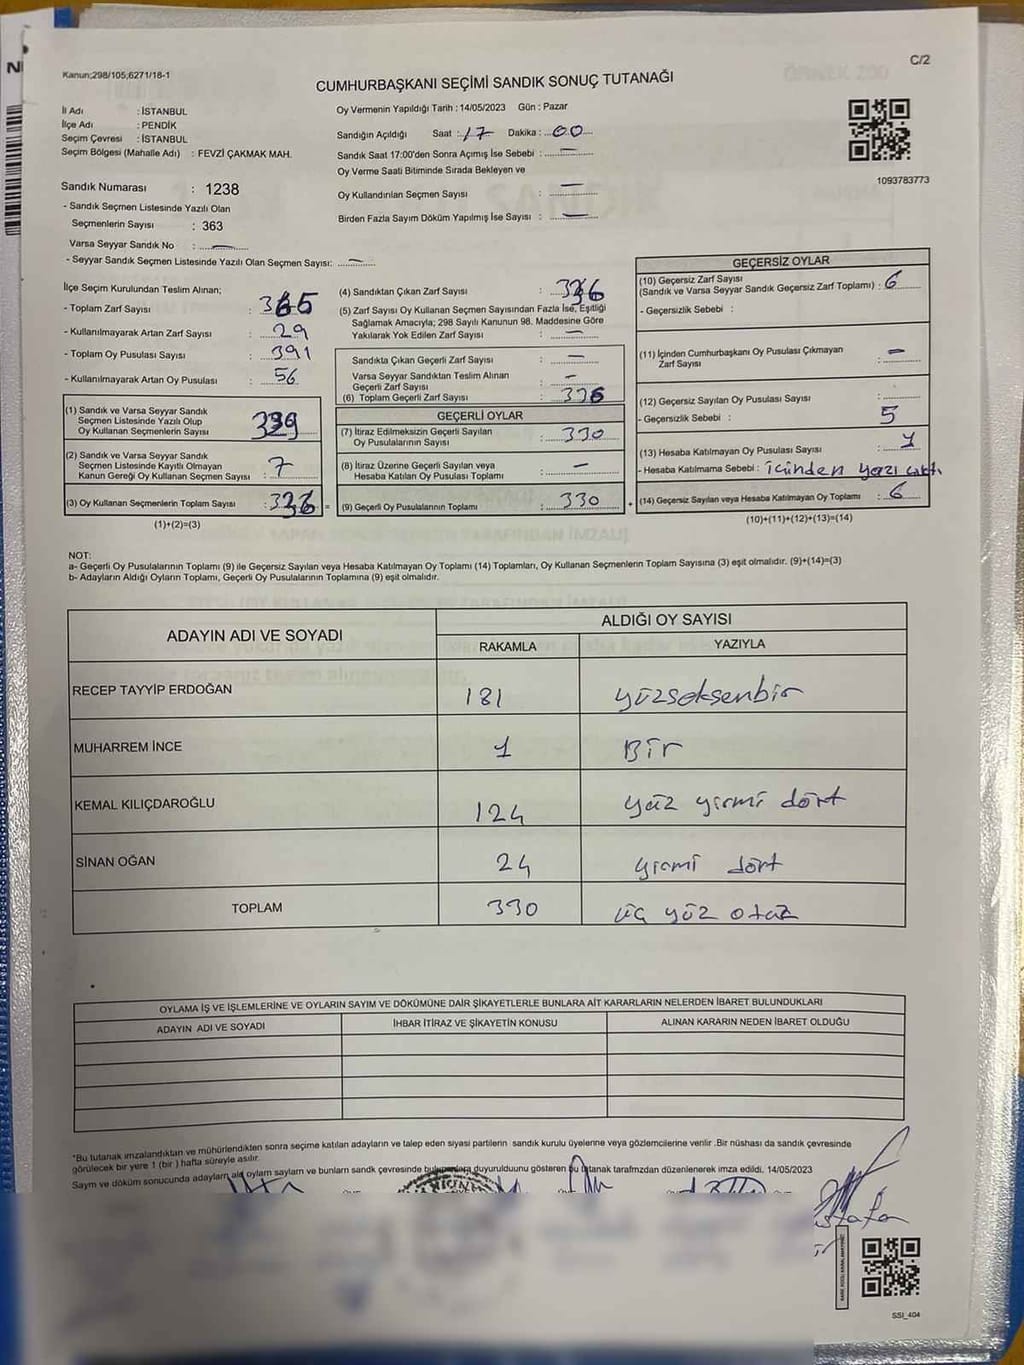 Kanun;298/105;6271/18-1
C/2
CUMHURBAŞKANI SEÇİMİ SANDIK SONUÇ TUTANAĞI
İl Adı : İSTANBUL
İlçe Adı : PENDİK
Seçim Çevresi : İSTANBUL
Seçim Bölgesi (Mahalle Adı) : FEVZİ ÇAKMAK MAH.
Sandık Numarası : 1238
- Sandık Seçmen Listesinde Yazılı Olan
Seçmenlerin Sayısı : 363
Varsa Seyyar Sandık No : —
- Seyyar Sandık Seçmen Listesinde Yazılı Olan Seçmen Sayısı: —
Oy Vermenin Yapıldığı Tarih : 14/05/2023 Gün : Pazar
Sandığın Açıldığı Saat : 17 Dakika : 00
Sandık Saat 17:00'den Sonra Açımış İse Sebebi : —
Oy Verme Saati Bitiminde Sırada Bekleyen ve
Oy Kullandırılan Seçmen Sayısı : —
Birden Fazla Sayım Döküm Yapılmış İse Sayısı : —
1093783773
İlçe Seçim Kurulundan Teslim Alınan;
- Toplam Zarf Sayısı : 365
- Kullanılmayarak Artan Zarf Sayısı : 29
- Toplam Oy Pusulası Sayısı : 391
- Kullanılmayarak Artan Oy Pusulası : 56
(1) Sandık ve Varsa Seyyar Sandık
Seçmen Listesinde Yazılı Olup
Oy Kullanan Seçmenlerin Sayısı
(2) Sandık ve Varsa Seyyar Sandık
Seçmen Listesinde Kayıtlı Olmayan
Kanun Gereği Oy Kullanan Seçmen Sayısı : 7
(3) Oy Kullanan Seçmenlerin Toplam Sayısı :
(1)+(2)=(3)
(4) Sandıktan Çıkan Zarf Sayısı : 336
(5) Zarf Sayısı Oy Kullanan Seçmen Sayısından Fazla İse, Eşitliği
Sağlamak Amacıyla; 298 Sayılı Kanunun 98. Maddesine Göre
Yakılarak Yok Edilen Zarf Sayısı : —
Sandıkta Çıkan Geçerli Zarf Sayısı : —
Varsa Seyyar Sandıktan Teslim Alınan
Geçerli Zarf Sayısı : —
(6) Toplam Geçerli Zarf Sayısı : 336
GEÇERLİ OYLAR
(7) İtiraz Edilmeksizin Geçerli Sayılan
Oy Pusulalarının Sayısı : 330
(8) İtiraz Üzerine Geçerli Sayılan veya
Hesaba Katılan Oy Pusulası Toplamı : —
(9) Geçerli Oy Pusulalarının Toplamı : 330
GEÇERSİZ OYLAR
(10) Geçersiz Zarf Sayısı
(Sandık ve Varsa Seyyar Sandık Geçersiz Zarf Toplamı) : 6
- Geçersizlik Sebebi :
(11) İçinden Cumhurbaşkanı Oy Pusulası Çıkmayan
Zarf Sayısı : —
(12) Geçersiz Sayılan Oy Pusulası Sayısı :
- Geçersizlik Sebebi : 5
(13) Hesaba Katılmayan Oy Pusulası Sayısı : 1
- Hesaba Katılmama Sebebi : içinden yazı çıktı
(14) Geçersiz Sayılan veya Hesaba Katılmayan Oy Toplamı : 6
(10)+(11)+(12)+(13)=(14)
NOT:
a- Geçerli Oy Pusulalarının Toplamı (9) ile Geçersiz Sayılan veya Hesaba Katılmayan Oy Toplamı (14) Toplamları, Oy Kullanan Seçmenlerin Toplam Sayısına (3) eşit olmalıdır. (9)+(14)=(3)
b- Adayların Aldığı Oyların Toplamı, Geçerli Oy Pusulalarının Toplamına (9) eşit olmalıdır.
ADAYIN ADI VE SOYADI ALDIĞI OY SAYISI
RAKAMLA YAZIYLA
RECEP TAYYİP ERDOĞAN 181 yüzseksenbir
MUHARREM İNCE 1 Bir
KEMAL KILIÇDAROĞLU 124 yüz yirmi dört
SİNAN OĞAN 24 yirmi dört
TOPLAM 330 üç yüz otuz
OYLAMA İŞ VE İŞLEMLERİNE VE OYLARIN SAYIM VE DÖKÜMÜNE DAİR ŞİKAYETLERLE BUNLARA AİT KARARLARIN NELERDEN İBARET BULUNDUKLARI
ADAYIN ADI VE SOYADI İHBAR İTİRAZ VE ŞİKAYETİN KONUSU ALINAN KARARIN NEDEN İBARET OLDUĞU
*Bu tutanak imzalandıktan ve mühürlendikten sonra seçime katılan adayların ve talep eden siyasi partilerin sandık kurulu üyelerine veya gözlemcilerine verilir .Bir nüshası da sandık çevresinde
görülecek bir yere 1 (bir ) hafta süreyle asılır.
Saym ve döküm sonucunda adayların oylarn sayların ve bunların sandk çevresinde duyurulduunu gösteren bu tutanak tarafmzdan düzenlenerek imza edildi. 14/05/2023
SSİ_404